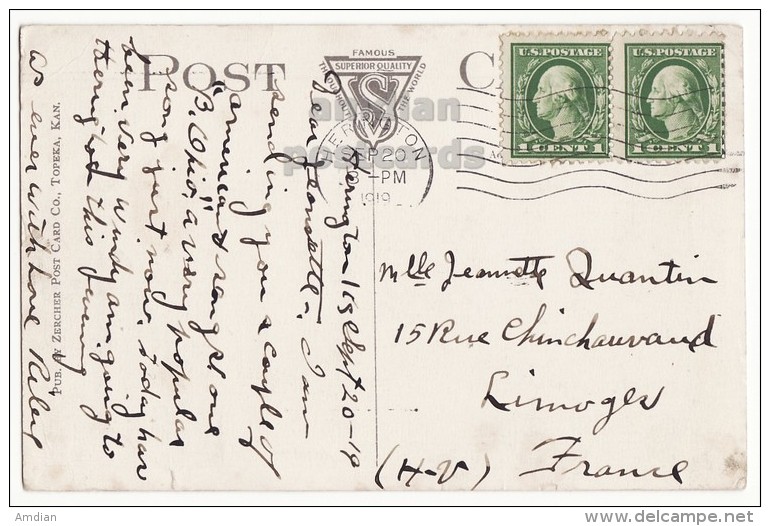 POST
FAMOUS
SUPERIOR QUALITY
THROUGHOUT THE WORLD
C
U.S. POSTAGE
1 CENT 1
U.S. POSTAGE
1 CENT 1
HERINGTON
SEP 20
-PM
1919
american
postcards
Herington Ks Sept 20-19
Dear Jeannette: I am
sending you a couple of
american songs one
"B. Ohio" a very popular
song just now. Today has
been very windy am going to
the this evening
as ever with love Riley
PUB. BY ZERCHER POST CARD CO., TOPEKA, KAN.
Mlle Jeannette Quantin
15 Rue Chinchauvaud
Limoges
(H-V) France
Amdian
delcampe.net